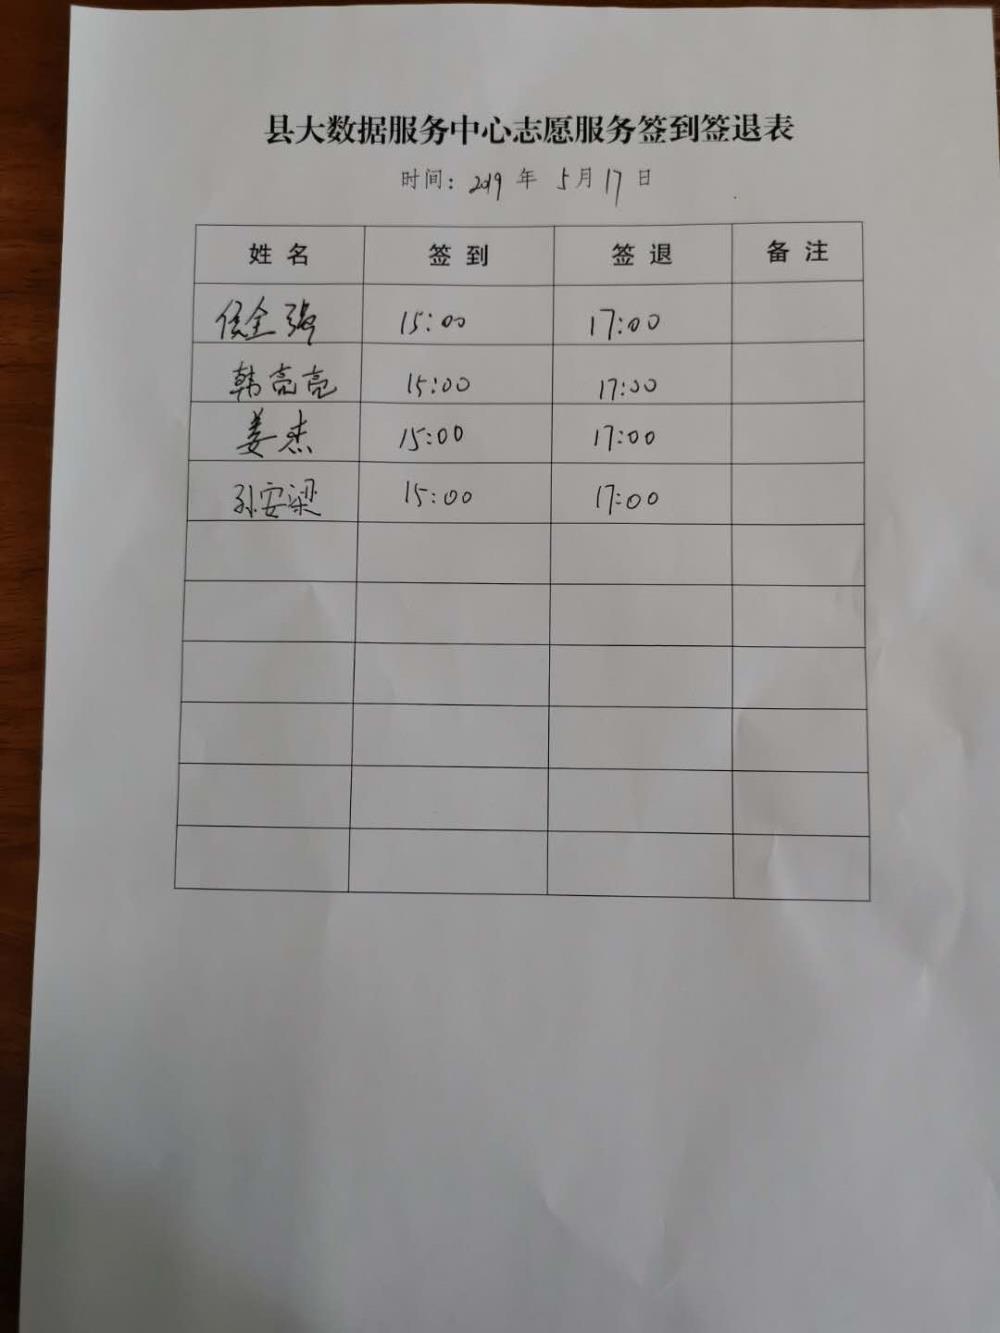 县大数据服务中心志愿服务签到签退表
时间：2019年 5月17日
姓名 签到 签退 备注
侯全强 15:00 17:00
韩亮亮 15:00 17:00
姜杰 15:00 17:00
孙安梁 15:00 17:00